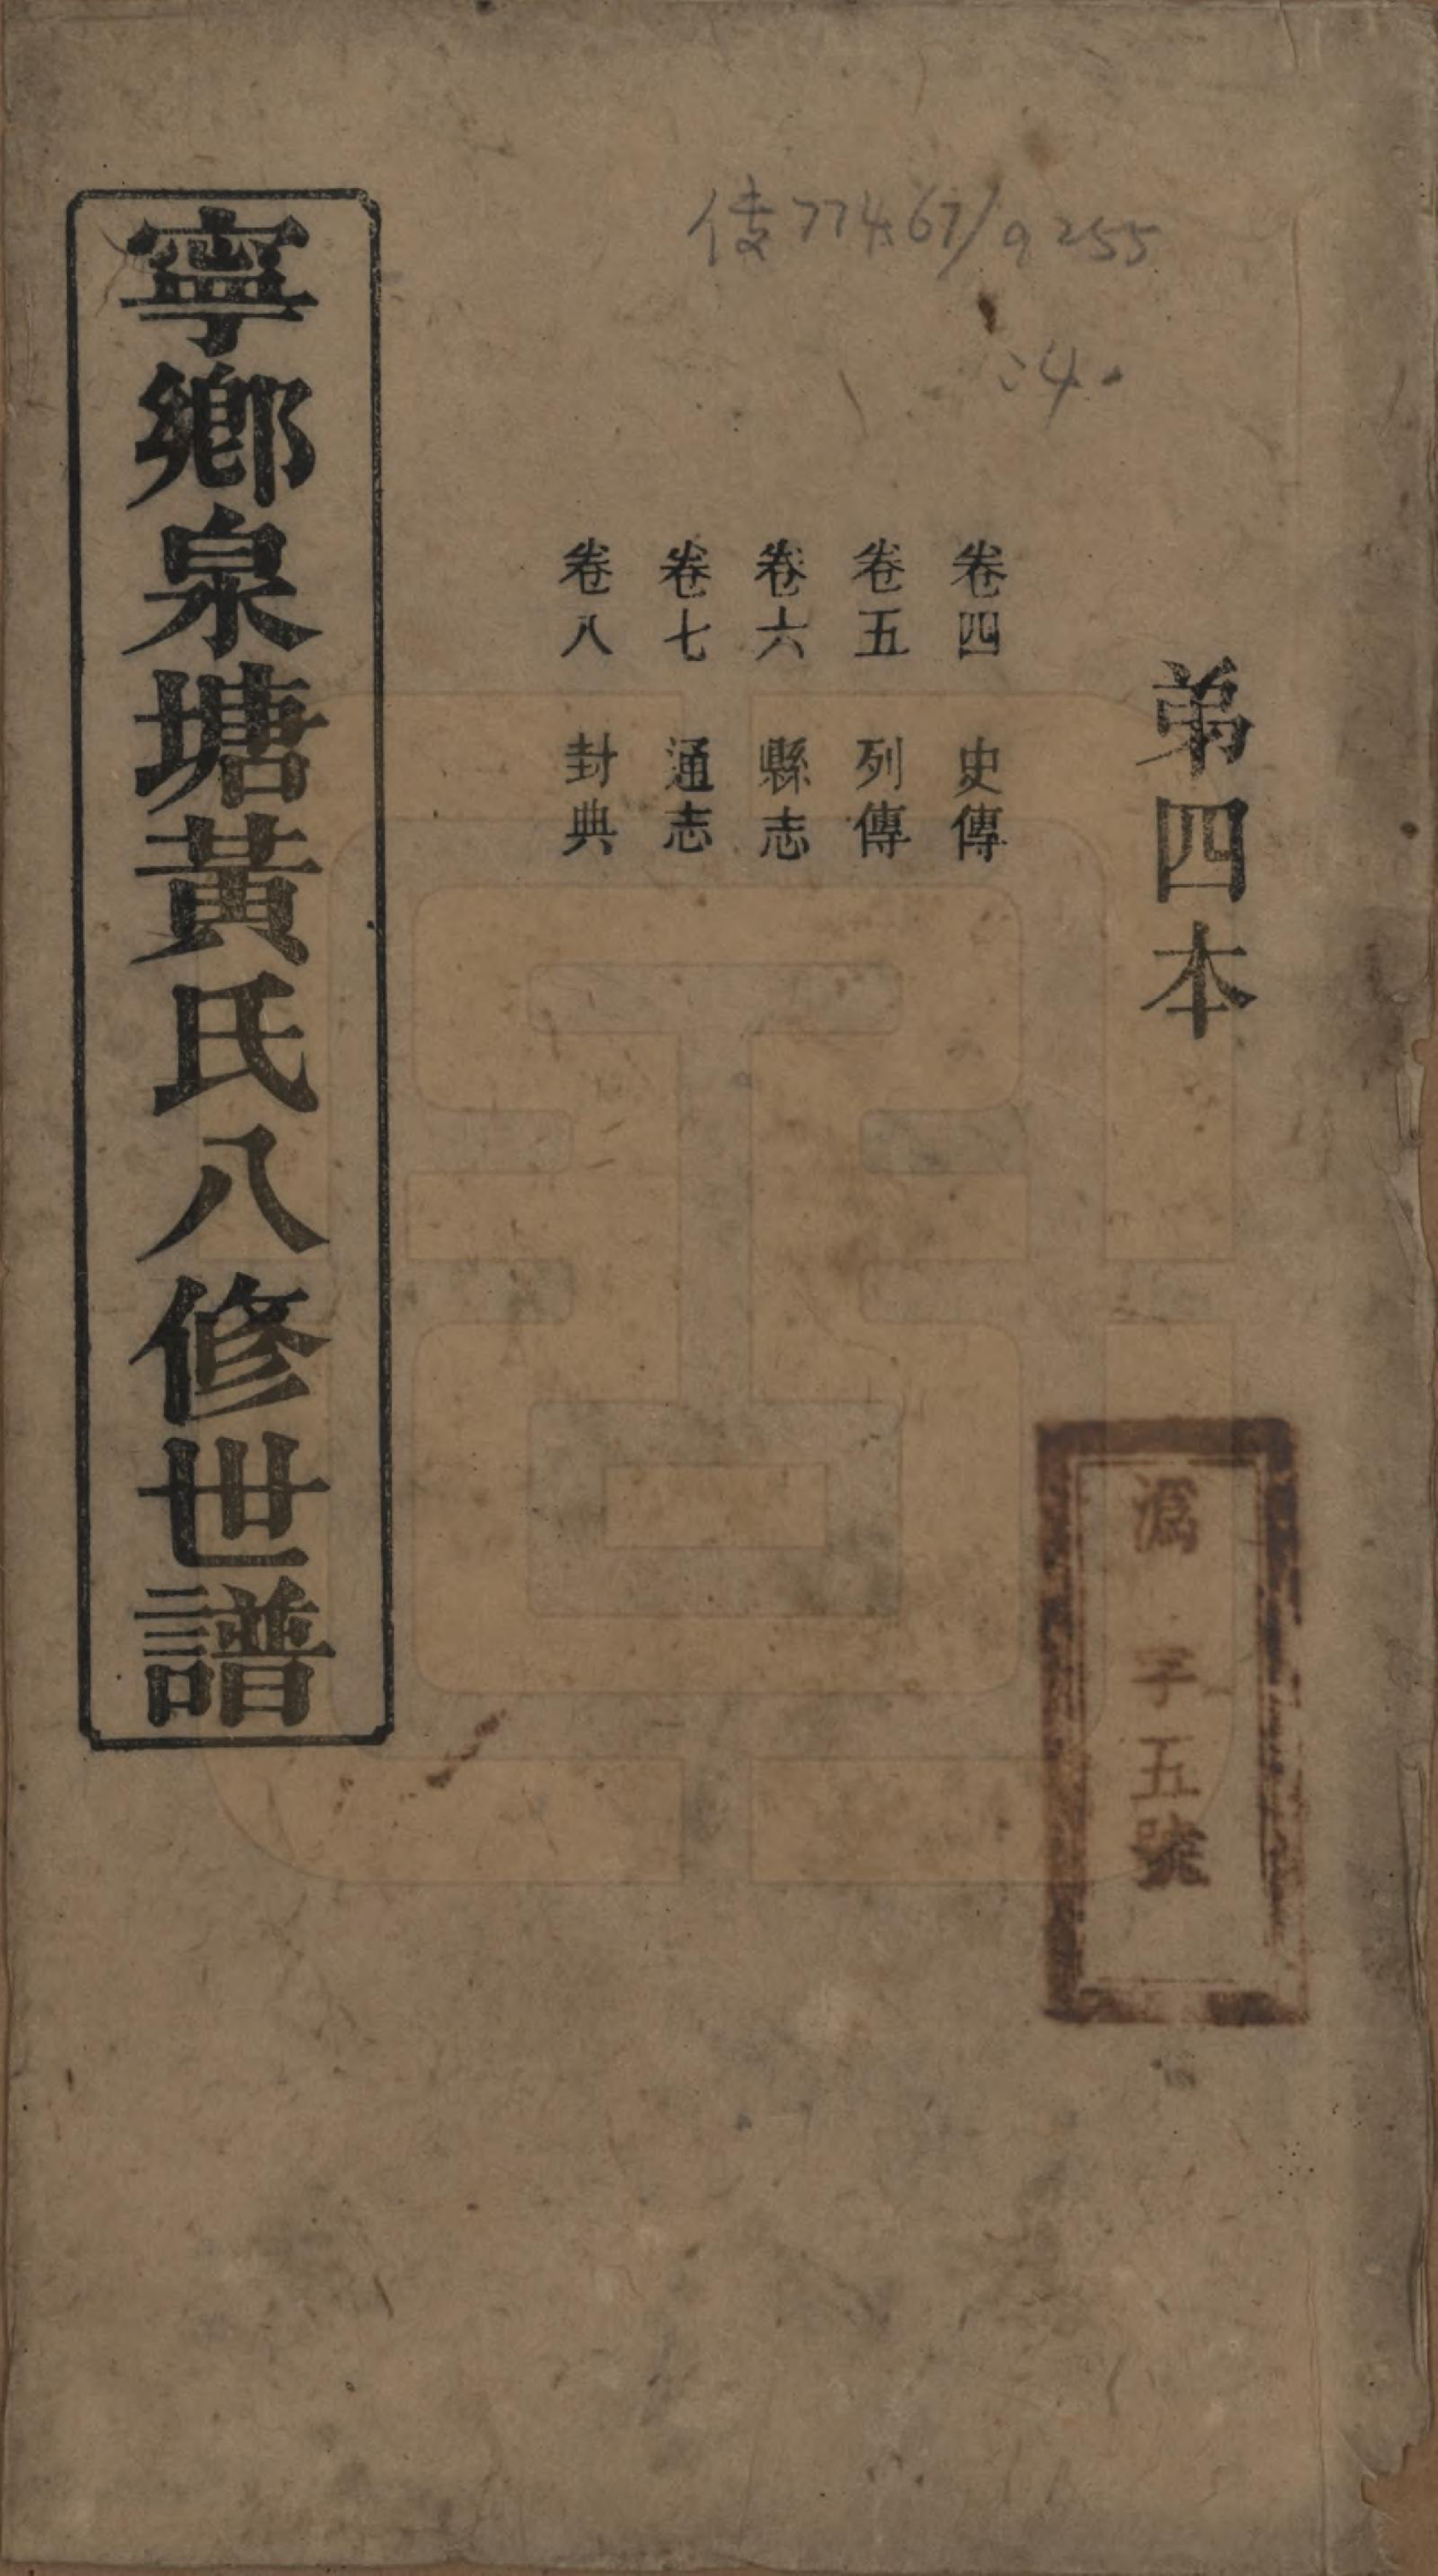 弟四本
卷四 史傳
卷五 列傳
卷六 縣志
卷七 通志
卷八 封典
寧鄉泉塘黃氏八修世譜
字五號
774.67/9255
:4.